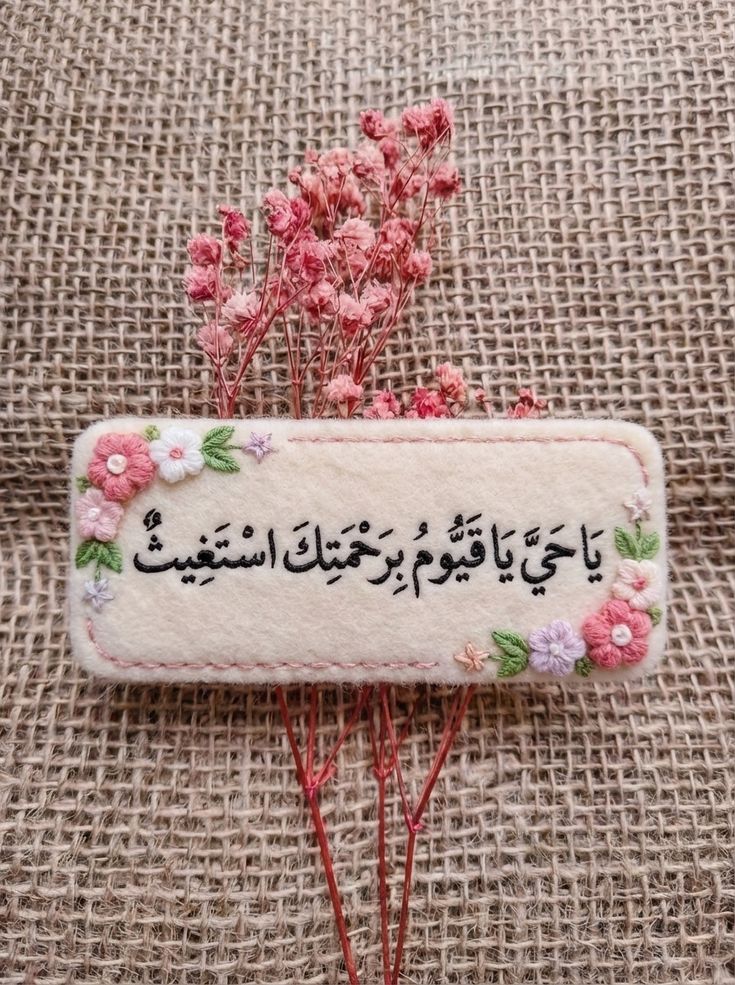 يَا حَيَّ يَا قَيُّومُ بِرَحْمَتِكَ اسْتَغِيثٌ